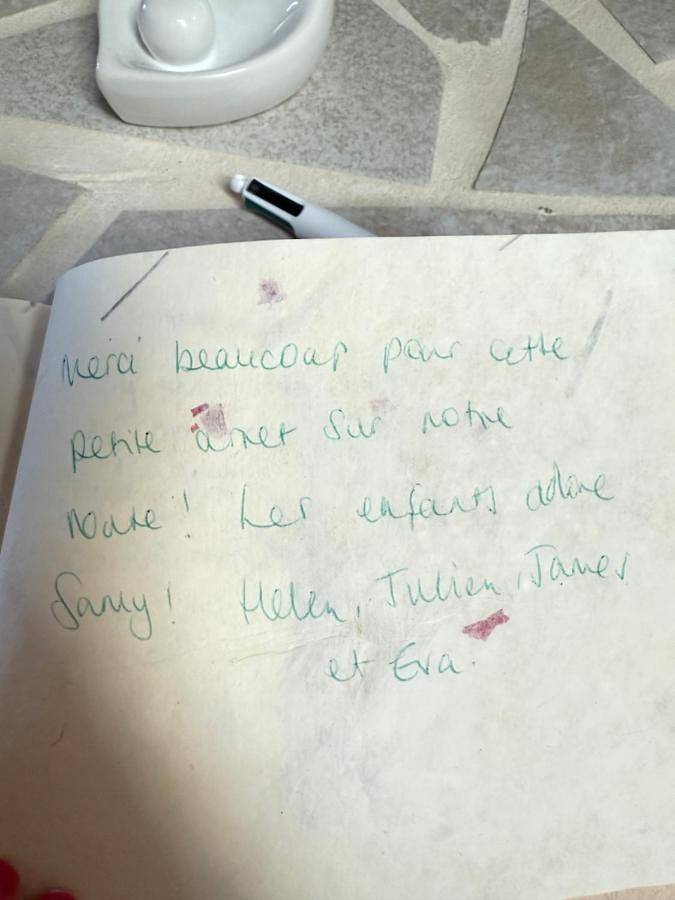 Merci beaucoup pour cette
petite arret sur notre
route! Les enfants adore
Samy! Helen, Julien, James
et Eva.